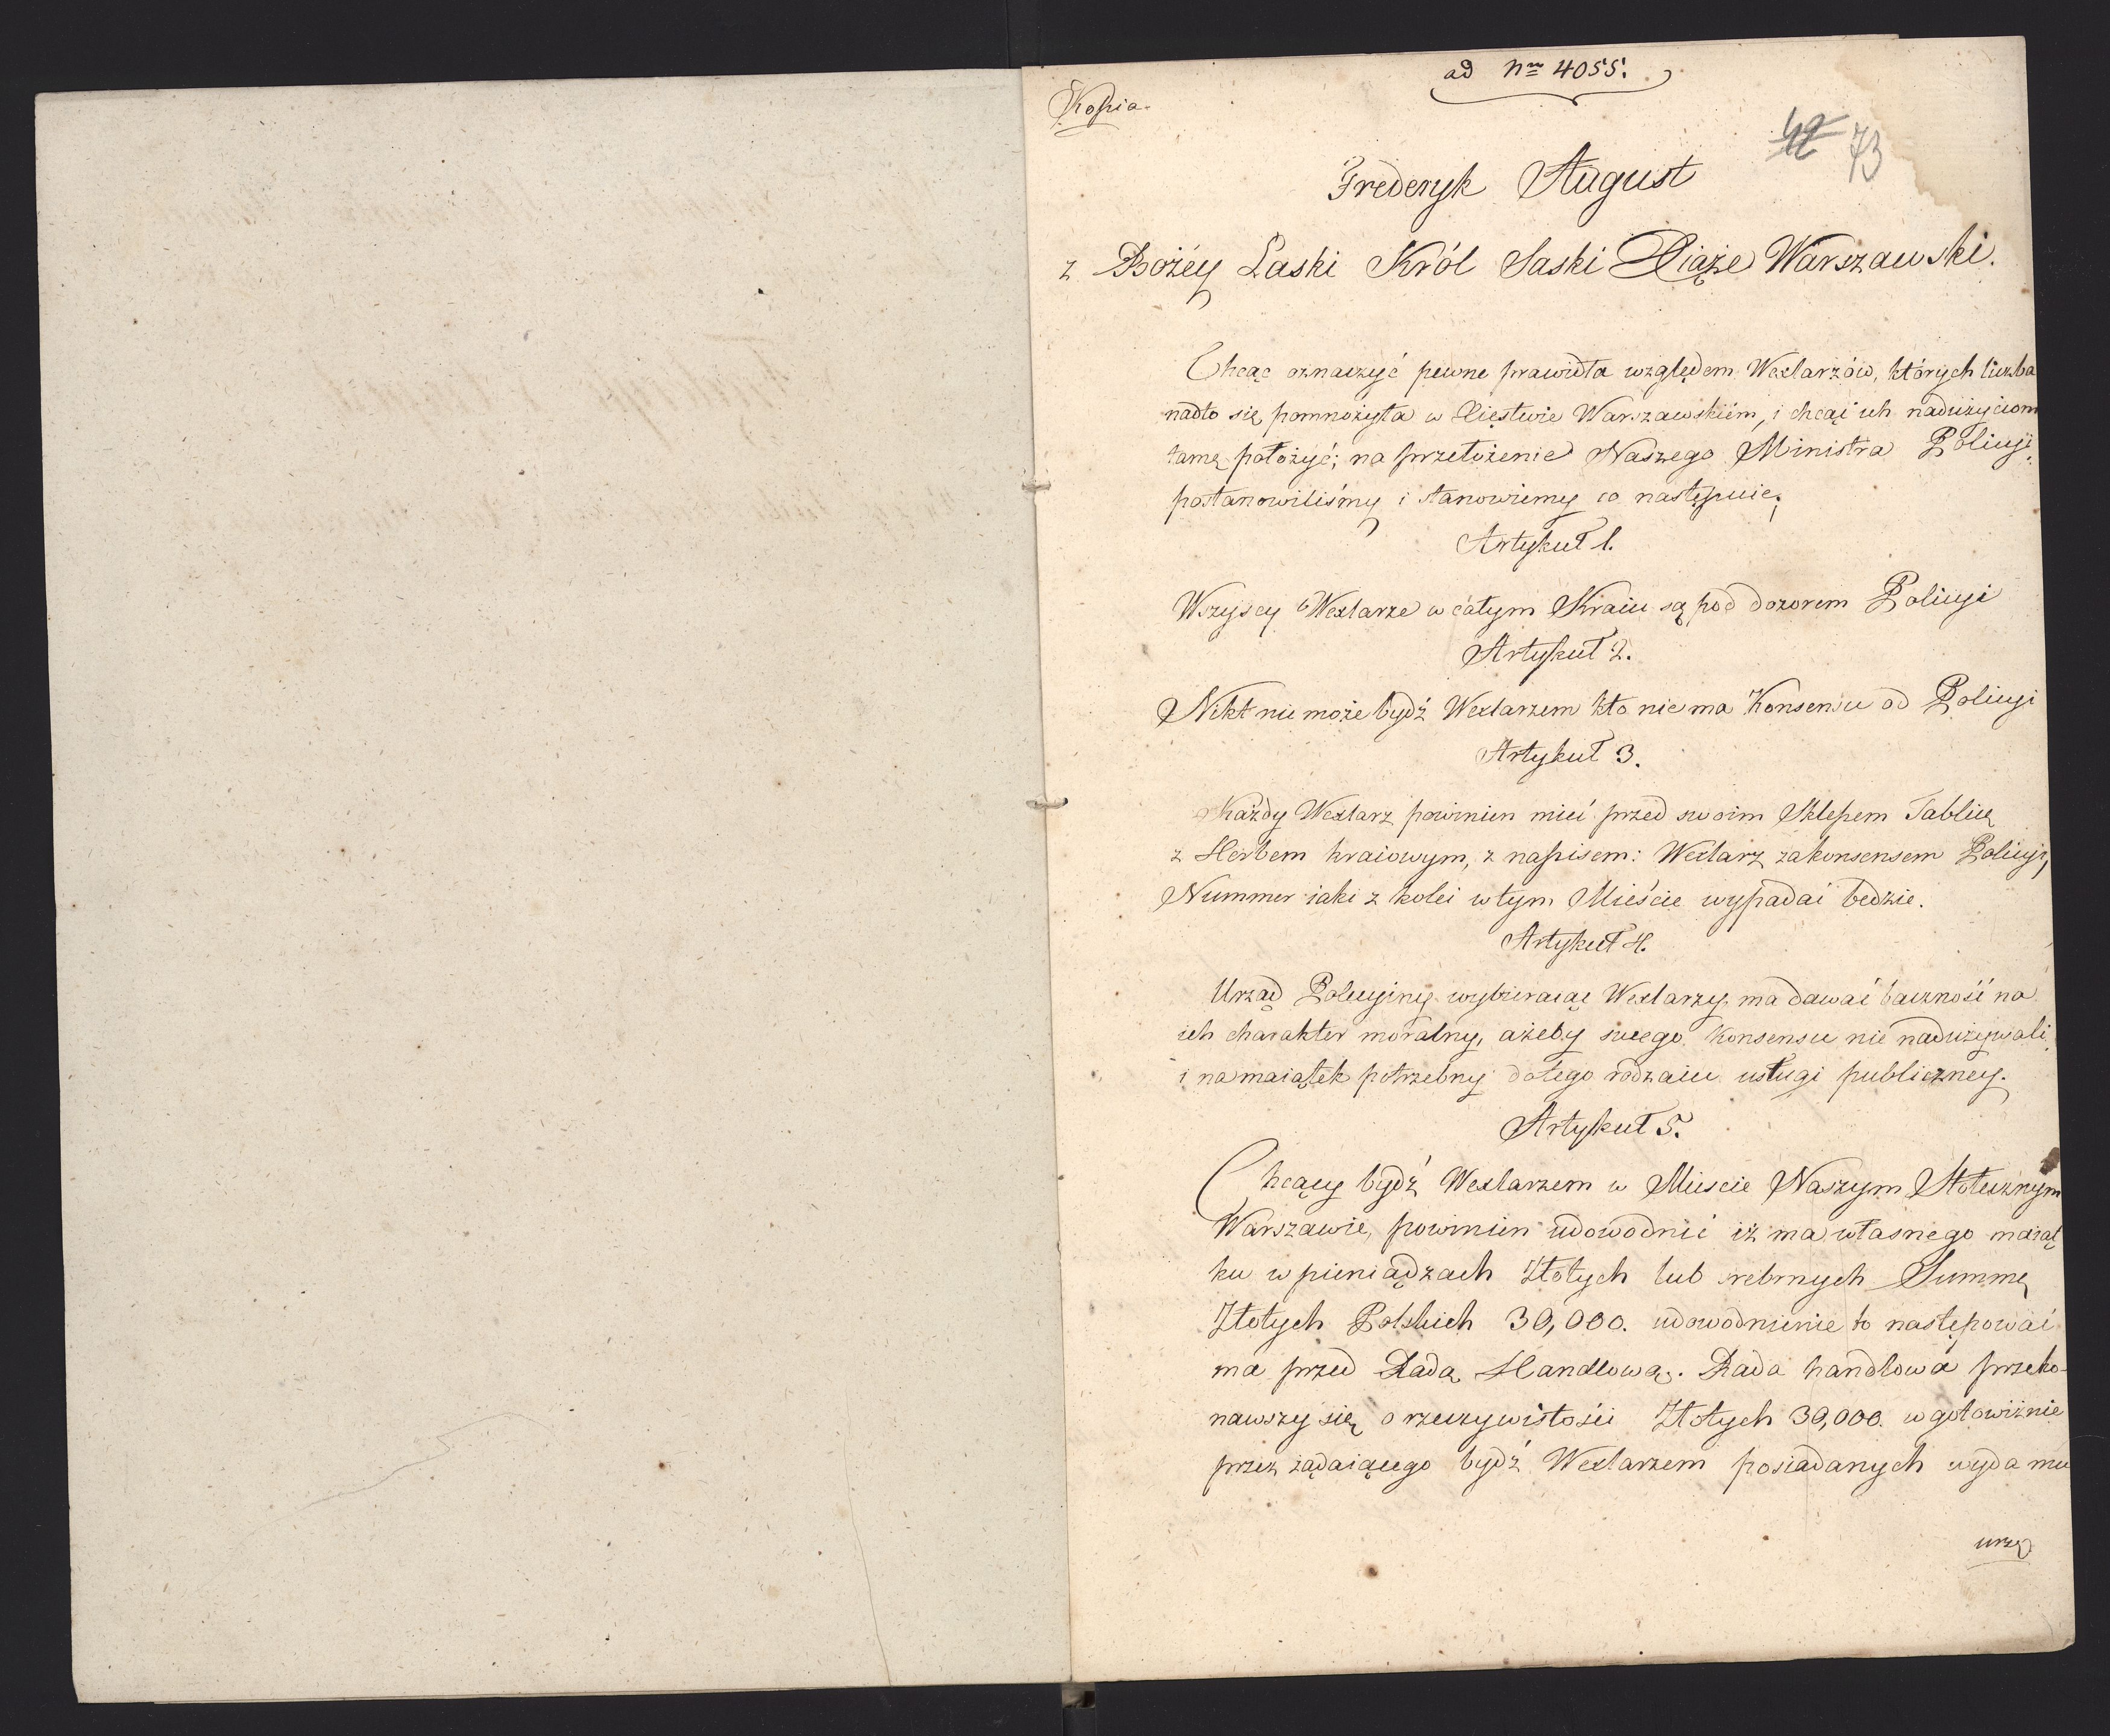 ad Nrm 4055.
Kopia.
42 73
Frederyk August
z Bożéy Laski Król Saski Xiąże Warszawski.
Chcąc oznaczyć pewne prawidła względem Wexlarzów, których liczba
nadto się pomnożyła w Xięstwie Warszawskiém, i chcąc ich nadużyciom
tamę położyć; na przełożenie Naszego Ministra Policyi,
postanowiliśmy i stanowiemy co następuie;
Artykuł 1.
Wszyscy Wexlarze w całym Kraiu są pod dozorem Policyi
Artykuł 2.
Nikt nie może bydź Wexlarzem kto nie ma Konsensu od Policyi
Artykuł 3.
Każdy Wexlarz powinien mieć przed swoim Sklepem Tablicę
z Herbem kraiowym, z napisem: Wexlarz za konsensem Policyi,
Nummer iaki z kolei w tym Mieście wypadać bedzie.
Artykuł 4.
Urząd Policyiny wybieraiąc Wexlarzy, ma dawać baczność na
ich charakter moralny, ażeby swego Konsensu nie nadużywali,
i na maiątek potrzebny do tego rodzaiu usługi publiczney.
Artykuł 5.
Chcący bydź Wexlarzem w Miescie Naszym Stołecznym
Warszawie, powinien udowodnić iż ma własnego maiąt
ku w pieniądzach złotych lub srebrnych Summę
Złotych Polskich 30,000. udowodnienie to następować
ma przed Radą Handlową. Rada handlowa przeko-
nawszy się o rzeczywistości Złotych 30,000. w gotowiznie
przez żądaiącego bydź Wexlarzem posiadanych wyda mu
urzę